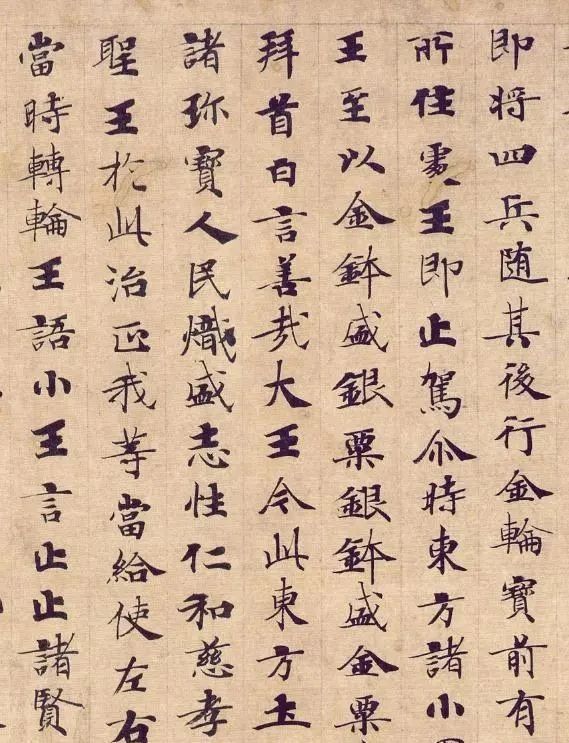 即将四兵随其後行金輪寳前有
所住處王即止駕尒時東方諸小
王至以金鉢盛銀粟銀鉢盛金粟
拜首白言善哉大王今此東方土
諸珎寳人民熾盛志性仁和慈孝
聖王於此治正我等當給使左右
當時轉輪王語小王言止止諸賢